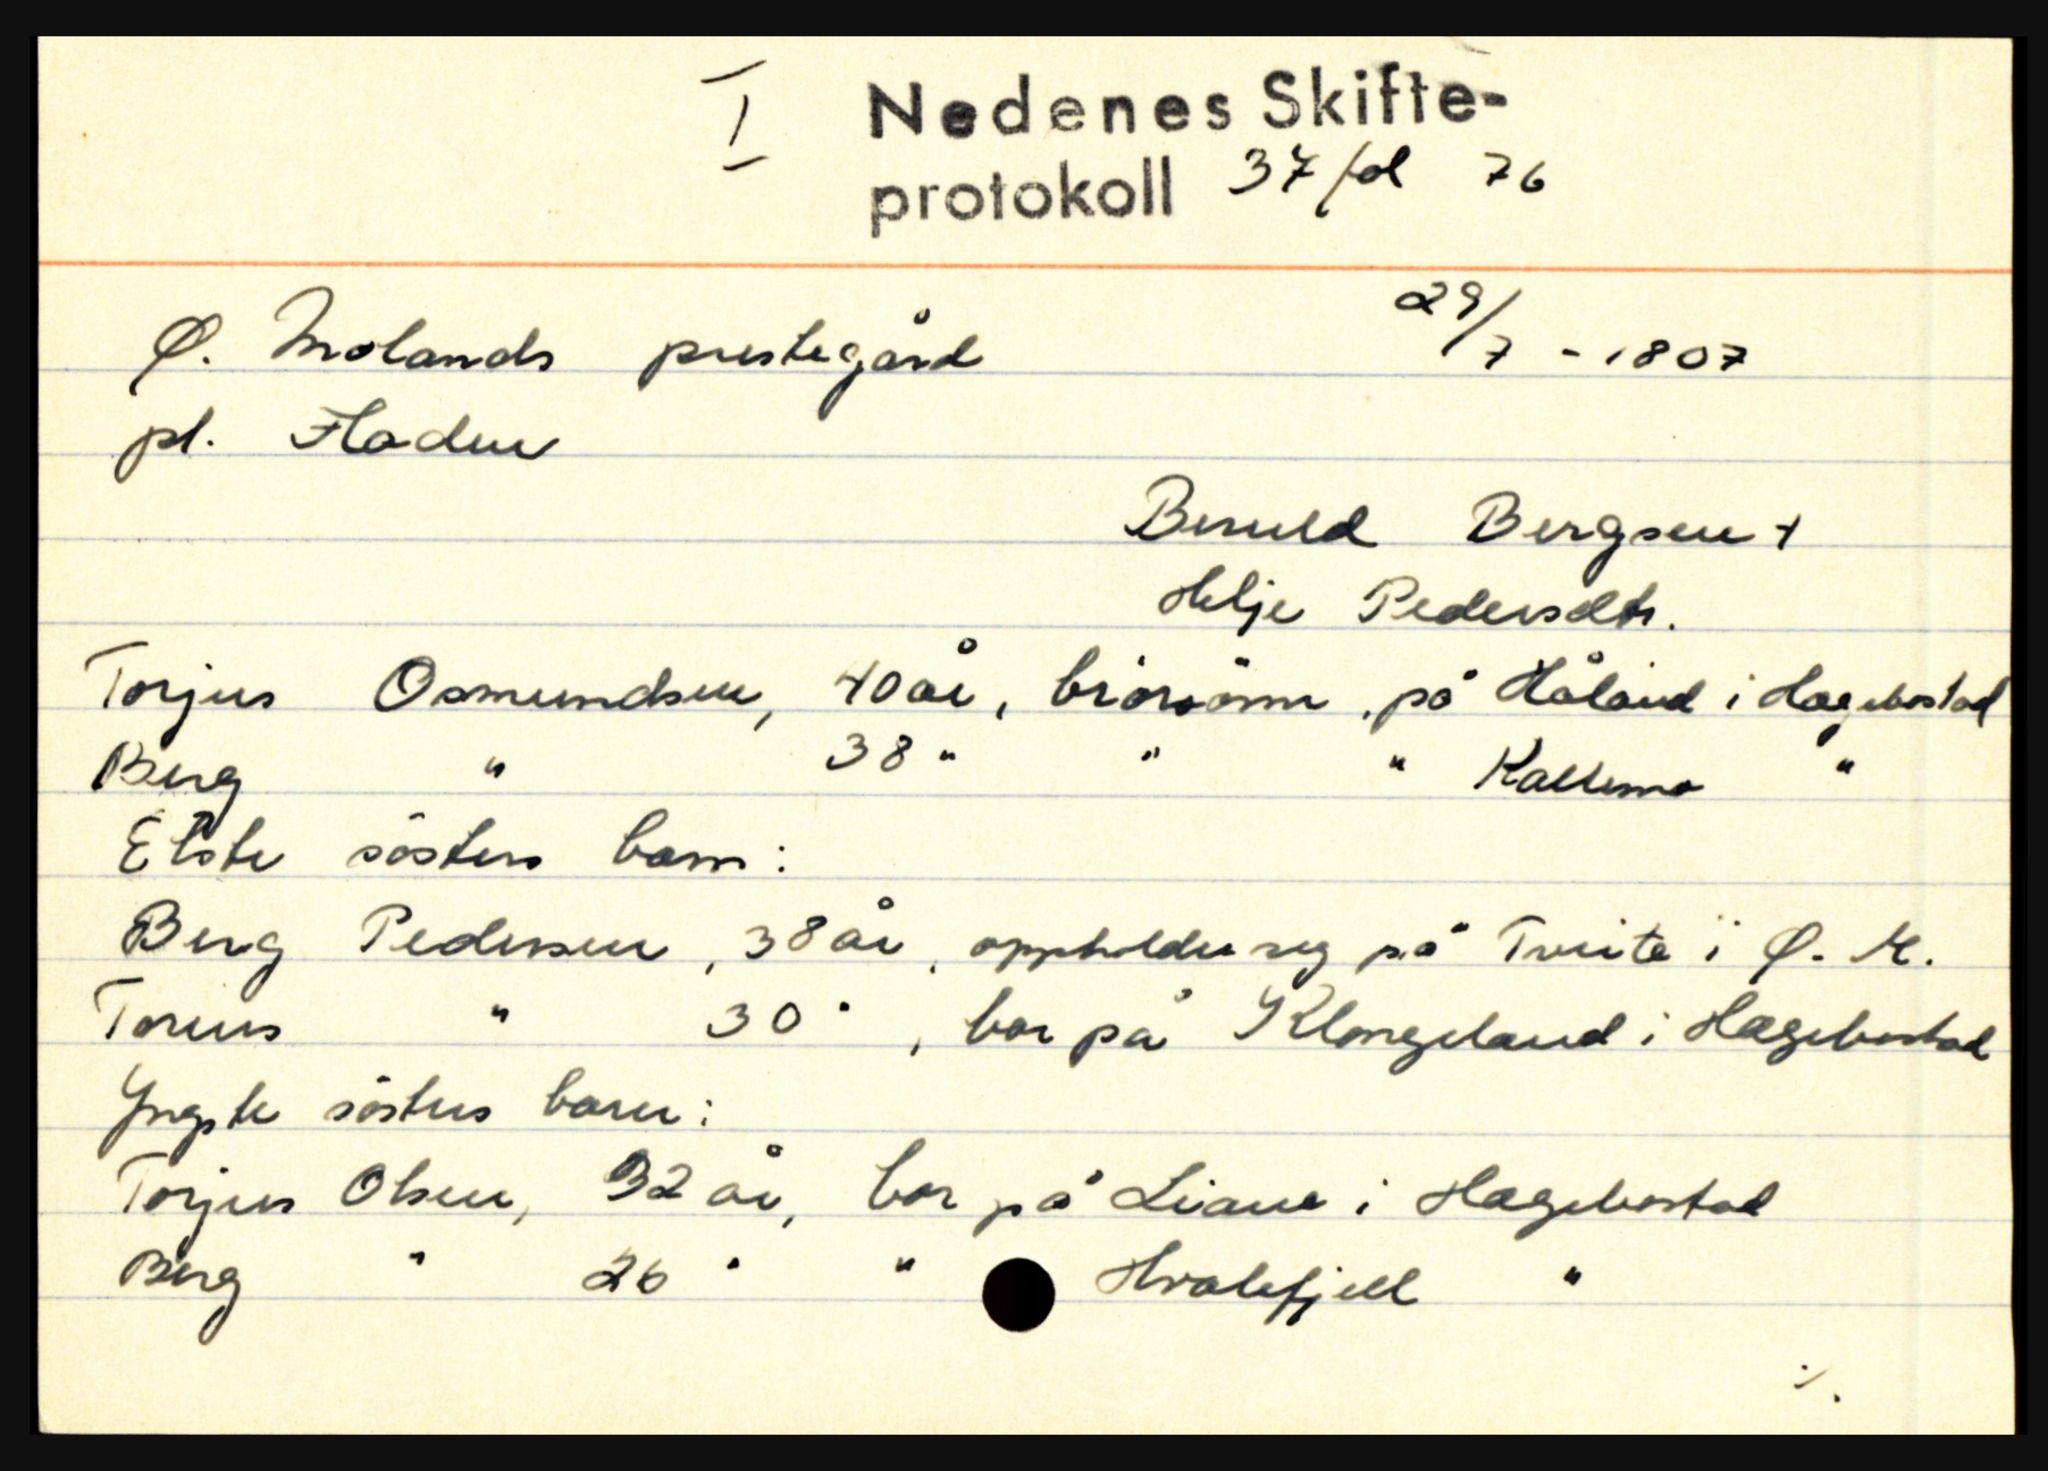 I Nedenes Skifte-
protokoll 37 fol 76
Ø. Molands prestegård 29/7 - 1807
pl. Fladen
Beruld Bergsen +
Helje Pedersdtr.
Torjus Osmundsen, 40 år, brorsønn, på Håland i Hægebostad
Berg " 38 " " " Kallemo "
Elste søsters barn:
Berg Pedersen, 38 år, oppholder seg på Tveite i Ø. M.
Torius " 30 " , bor på Klongeland i Hægebostad
Yngste søsters barn:
Torjus Olsen, 32 år, bor på Liane i Hægebostad
Berg " 26 " " Hvalefjell "
./.